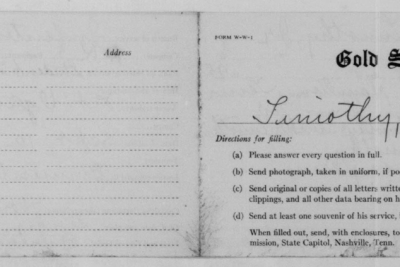 Address
FORM W-W-1
Gold S
Timothy,
Directions for filling:
(a) Please answer every question in full.
(b) Send photograph, taken in uniform, if po
(c) Send original or copies of all letters writte
clippings, and all other data bearing on h
(d) Send at least one souvenir of his service,
When filled out, send, with enclosures, to
mission, State Capitol, Nashville, Tenn.